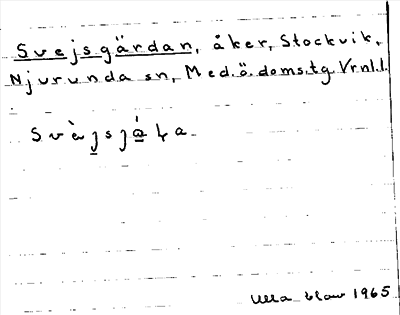 Svejsgärdan, åker, Stockvik,
Njurunda sn, Med.ö.doms.tg. Vrnl.l.
Ulla 1965